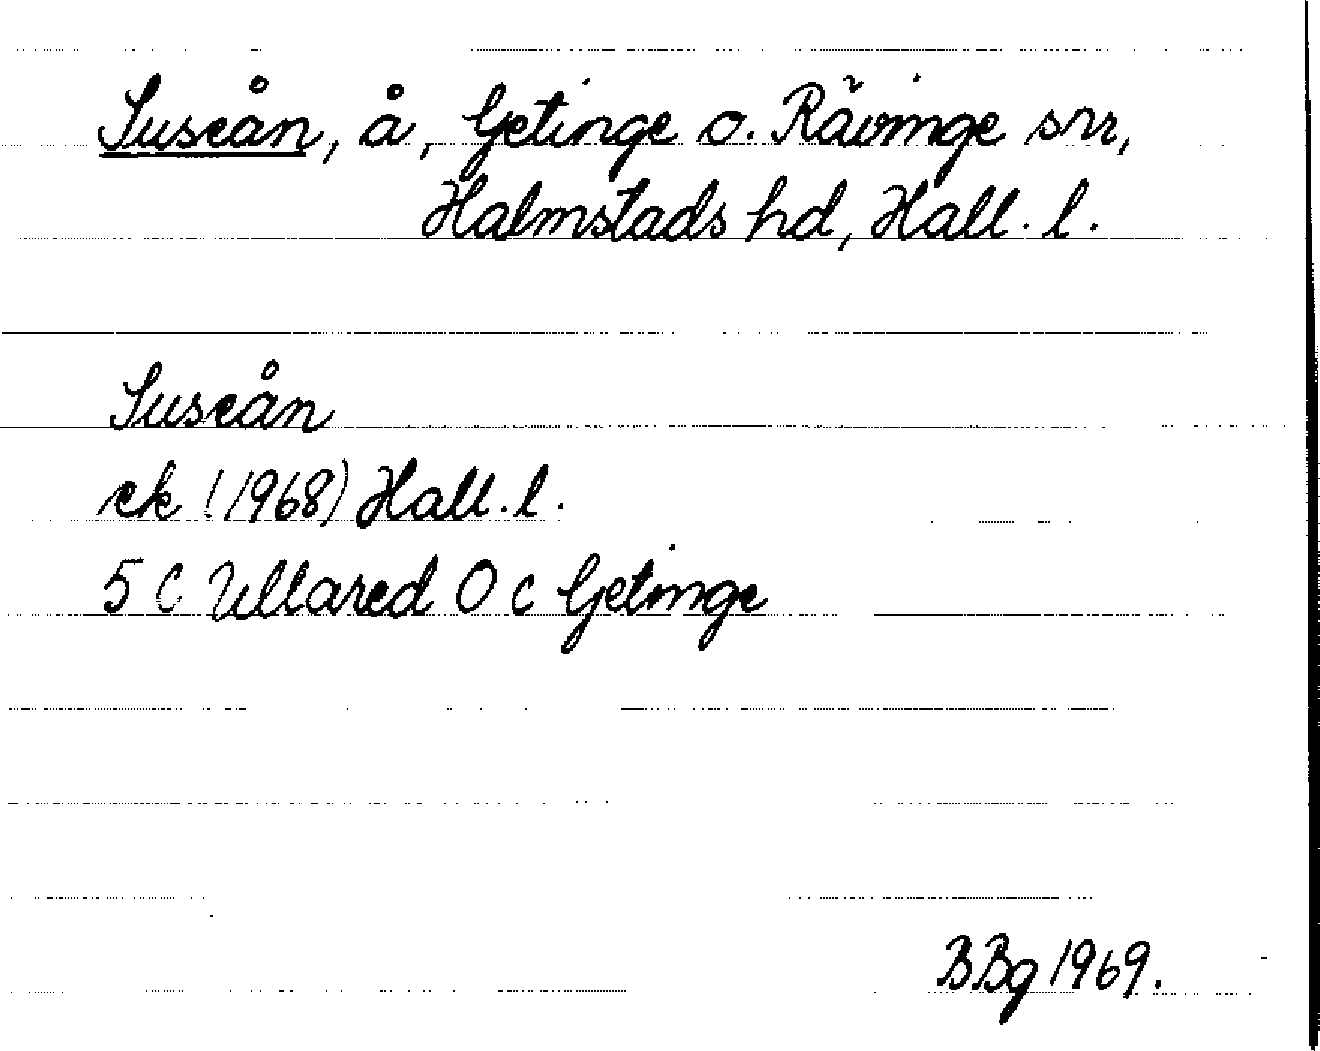 Suseån, å, Getinge o. Rävinge snr,
Halmstads hd, Hall. l.
Suseån
ek (1968) Hall. l.
5 C Ullared O c Getinge
BBg 1969.